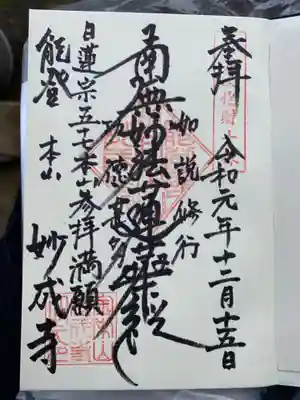 奉拝 令和元年十二月十五日
如説修行
南無妙法蓮華経
功徳甚多
日蓮宗五十七本山参拝満願
能登 本山 妙成寺